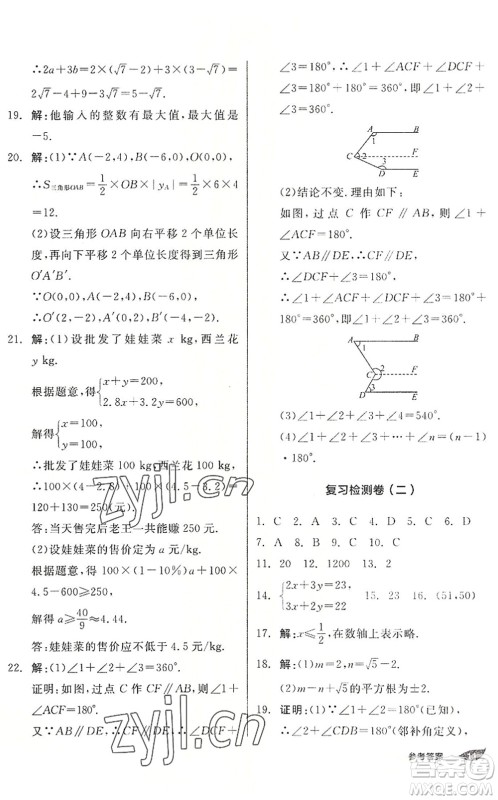 ∴2a+3b=2×(√7−2)+3×(3−√7)=
2√7−4+9−3√7=5−√7.
19. 解:他输入的整数有最大值,最大值是
−5.
20. 解:(1)∵A(−2,4),B(−6,0),O(0,0),
∴S三角形OAB=1/2×OB×|yA|=1/2×6×4
=12.
(2)设三角形 OAB 向右平移 2 个单位长
度,再向下平移 2 个单位长度得到三角形
O′A′B′.
∵O(0,0),A(−2,4),B(−6,0),
∴O′(2,−2),A′(0,2),B′(−4,−2).
21. 解:(1)设批发了娃娃菜 x kg,西兰花
y kg.
根据题意,得{x+y=200,
2.8x+3.2y=600,
解得{x=100,
y=100,
∴批发了娃娃菜 100 kg,西兰花 100 kg.
∴100×(4−2.8)+
120+130=250(元).
答:当天售完后老王一共能赚 250 元.
(2)设娃娃菜的售价定为 a 元/kg.
根据题意,得 100×(1−10%)a+100×
4.5−600≥250,
解得 a≥40/9≈4.44.
答:娃娃菜的售价应不低于 4.5 元/kg.
22. 解:(1)∠1+∠2+∠3=360°.
证明:如图,过点 C 作 CF∥AB,∴∠1+
∠ACF=180°.
又∵AB∥DE,∴CF∥DE,∴∠DCF+
∠3=180°,∴∠1+∠ACF+∠DCF+
∠3=180°+180°=360°,即∠1+∠2+
∠3=360°.
A B
1
C 2 F
3
D E
(2)结论不变. 理由如下:
如图,过点 C 作 CF∥AB,∴∠1+
∠ACF=180°.
又∵AB∥DE,∴CF∥DE,∴∠DCF+
∠3=180°,∴∠1+∠ACF+∠DCF+
∠3=180°+180°=360°,即∠1+∠2+
∠3=360°.
A B
1
C 2 F
3
D E
(3)∠1+∠2+∠3+∠4=540°.
(4)∠1+∠2+∠3+…+∠n=(n−1)
·180°.
复习检测卷(二)
1. C A
11. 20 12. 1200 13. 2
14. {2x+3y=23,
3x+2y=22
15. 23 16. (51,50)
17. 解:x≤1/2,在数轴上表示略.
18. 解:(1)m=2,n=√5−2.
(2)m−n+√5的平方根为±2.
19. 证明:∵∠1+∠2=180°(已知),
∠1+∠DFE=180°(邻补角定义),
参考答案
zyjl.cn
zyjl.cn